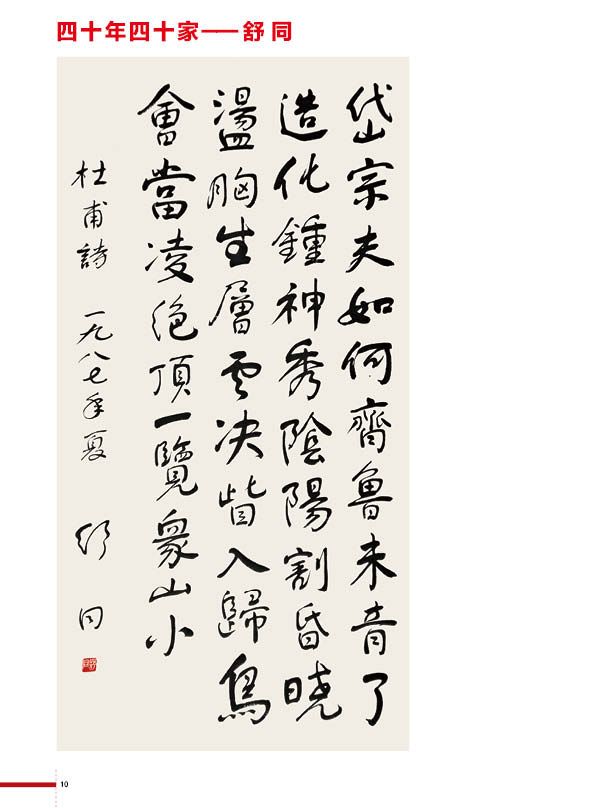 四十年四十家——舒 同
岱宗夫如何齊魯未青了
造化鍾神秀陰陽割昏曉
盪胸生層雲决眥入歸鳥
會當凌絕頂一覽衆山小
杜甫詩 一九八七年夏 舒同
10